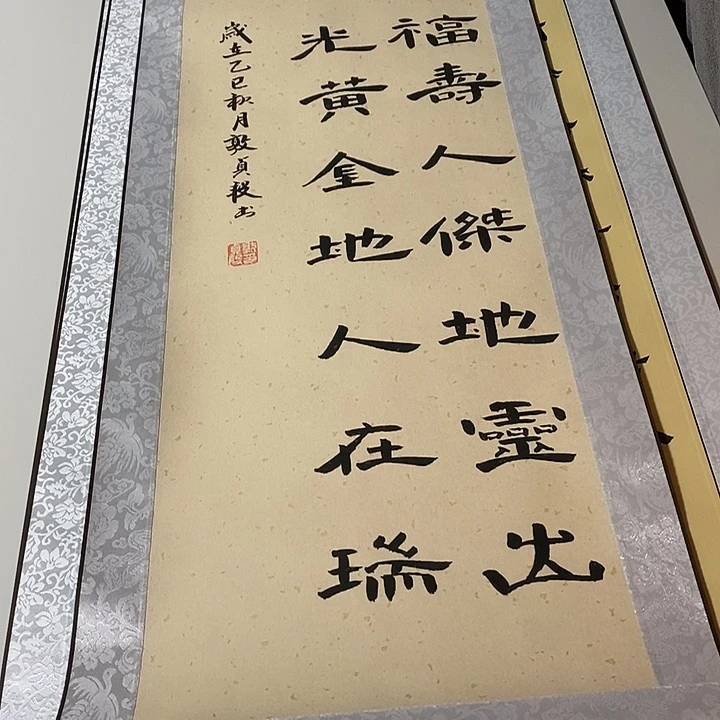 福壽人傑地靈出
光黄金地人在瑞
歲在乙巳秋月敦貞書